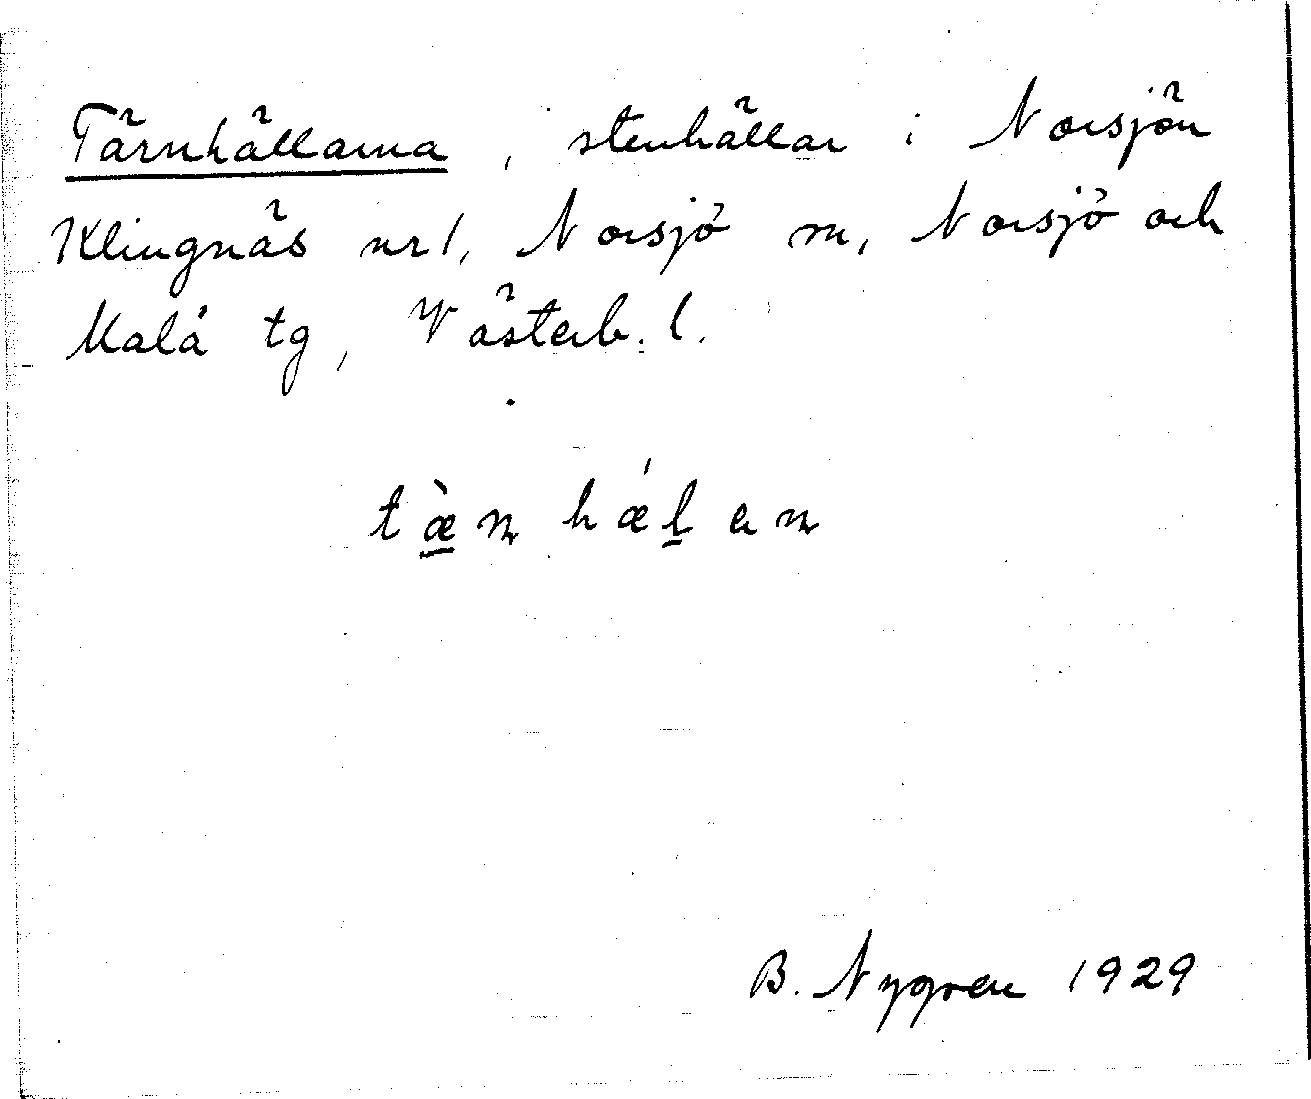 Tärnhällarna, stenhällar i Norsjön
Klingnäs nr 1, Norsjö sn, Norsjö och
Malå tg, Västerb. l.
tæ̠̀n hǽl̠an
B. Nygren 1929